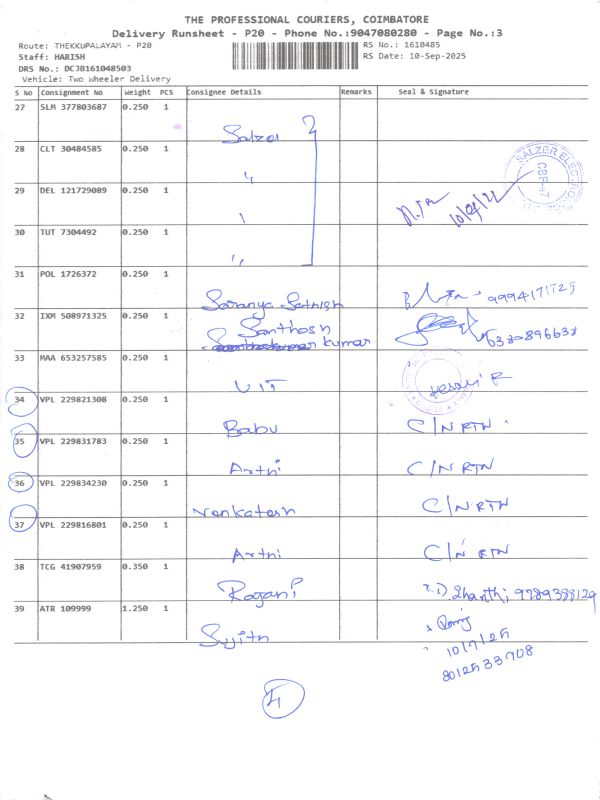 THE PROFESSIONAL COURIERS, COIMBATORE
Delivery Runsheet - P20 - Phone No.:9047080280 - Page No.:3
Route: THEKKUPALAYAM - P20
RS No.: 1610485
Staff: HARISH
RS Date: 10-Sep-2025
DRS No.: DCJ8161048503
Vehicle: Two Wheeler Delivery
S No Consignment No Weight PCS Consignee Details Remarks Seal & Signature
27 SLM 377803687 0.250 1
Salzer
28 CLT 30484585 0.250 1
〃
SALZER ELECTRO
29 DEL 121729089 0.250 1
30 TUT 7304492 0.250 1
〃
31 POL 1726372 0.250 1
Saranya Sathish 9994171725
32 IXM 508971325 0.250 1
Santhosh
kumar
33 MAA 653257585 0.250 1
VIT
34 VPL 229821308 0.250 1
Babu C/N RTN
35 VPL 229831783 0.250 1
Arthi C/N RTN
36 VPL 229834230 0.250 1
Venkatesh C/N RTN
37 VPL 229816801 0.250 1
Arthi C/N RTN
38 TCG 41907959 0.350 1
Rogani D. Shanthi
39 ATR 109999 1.250 1
Sujith
8012533708
4